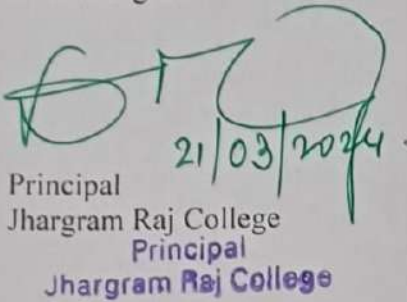 21/03/2024
Principal
Jhargram Raj College
Principal
Jhargram Raj College